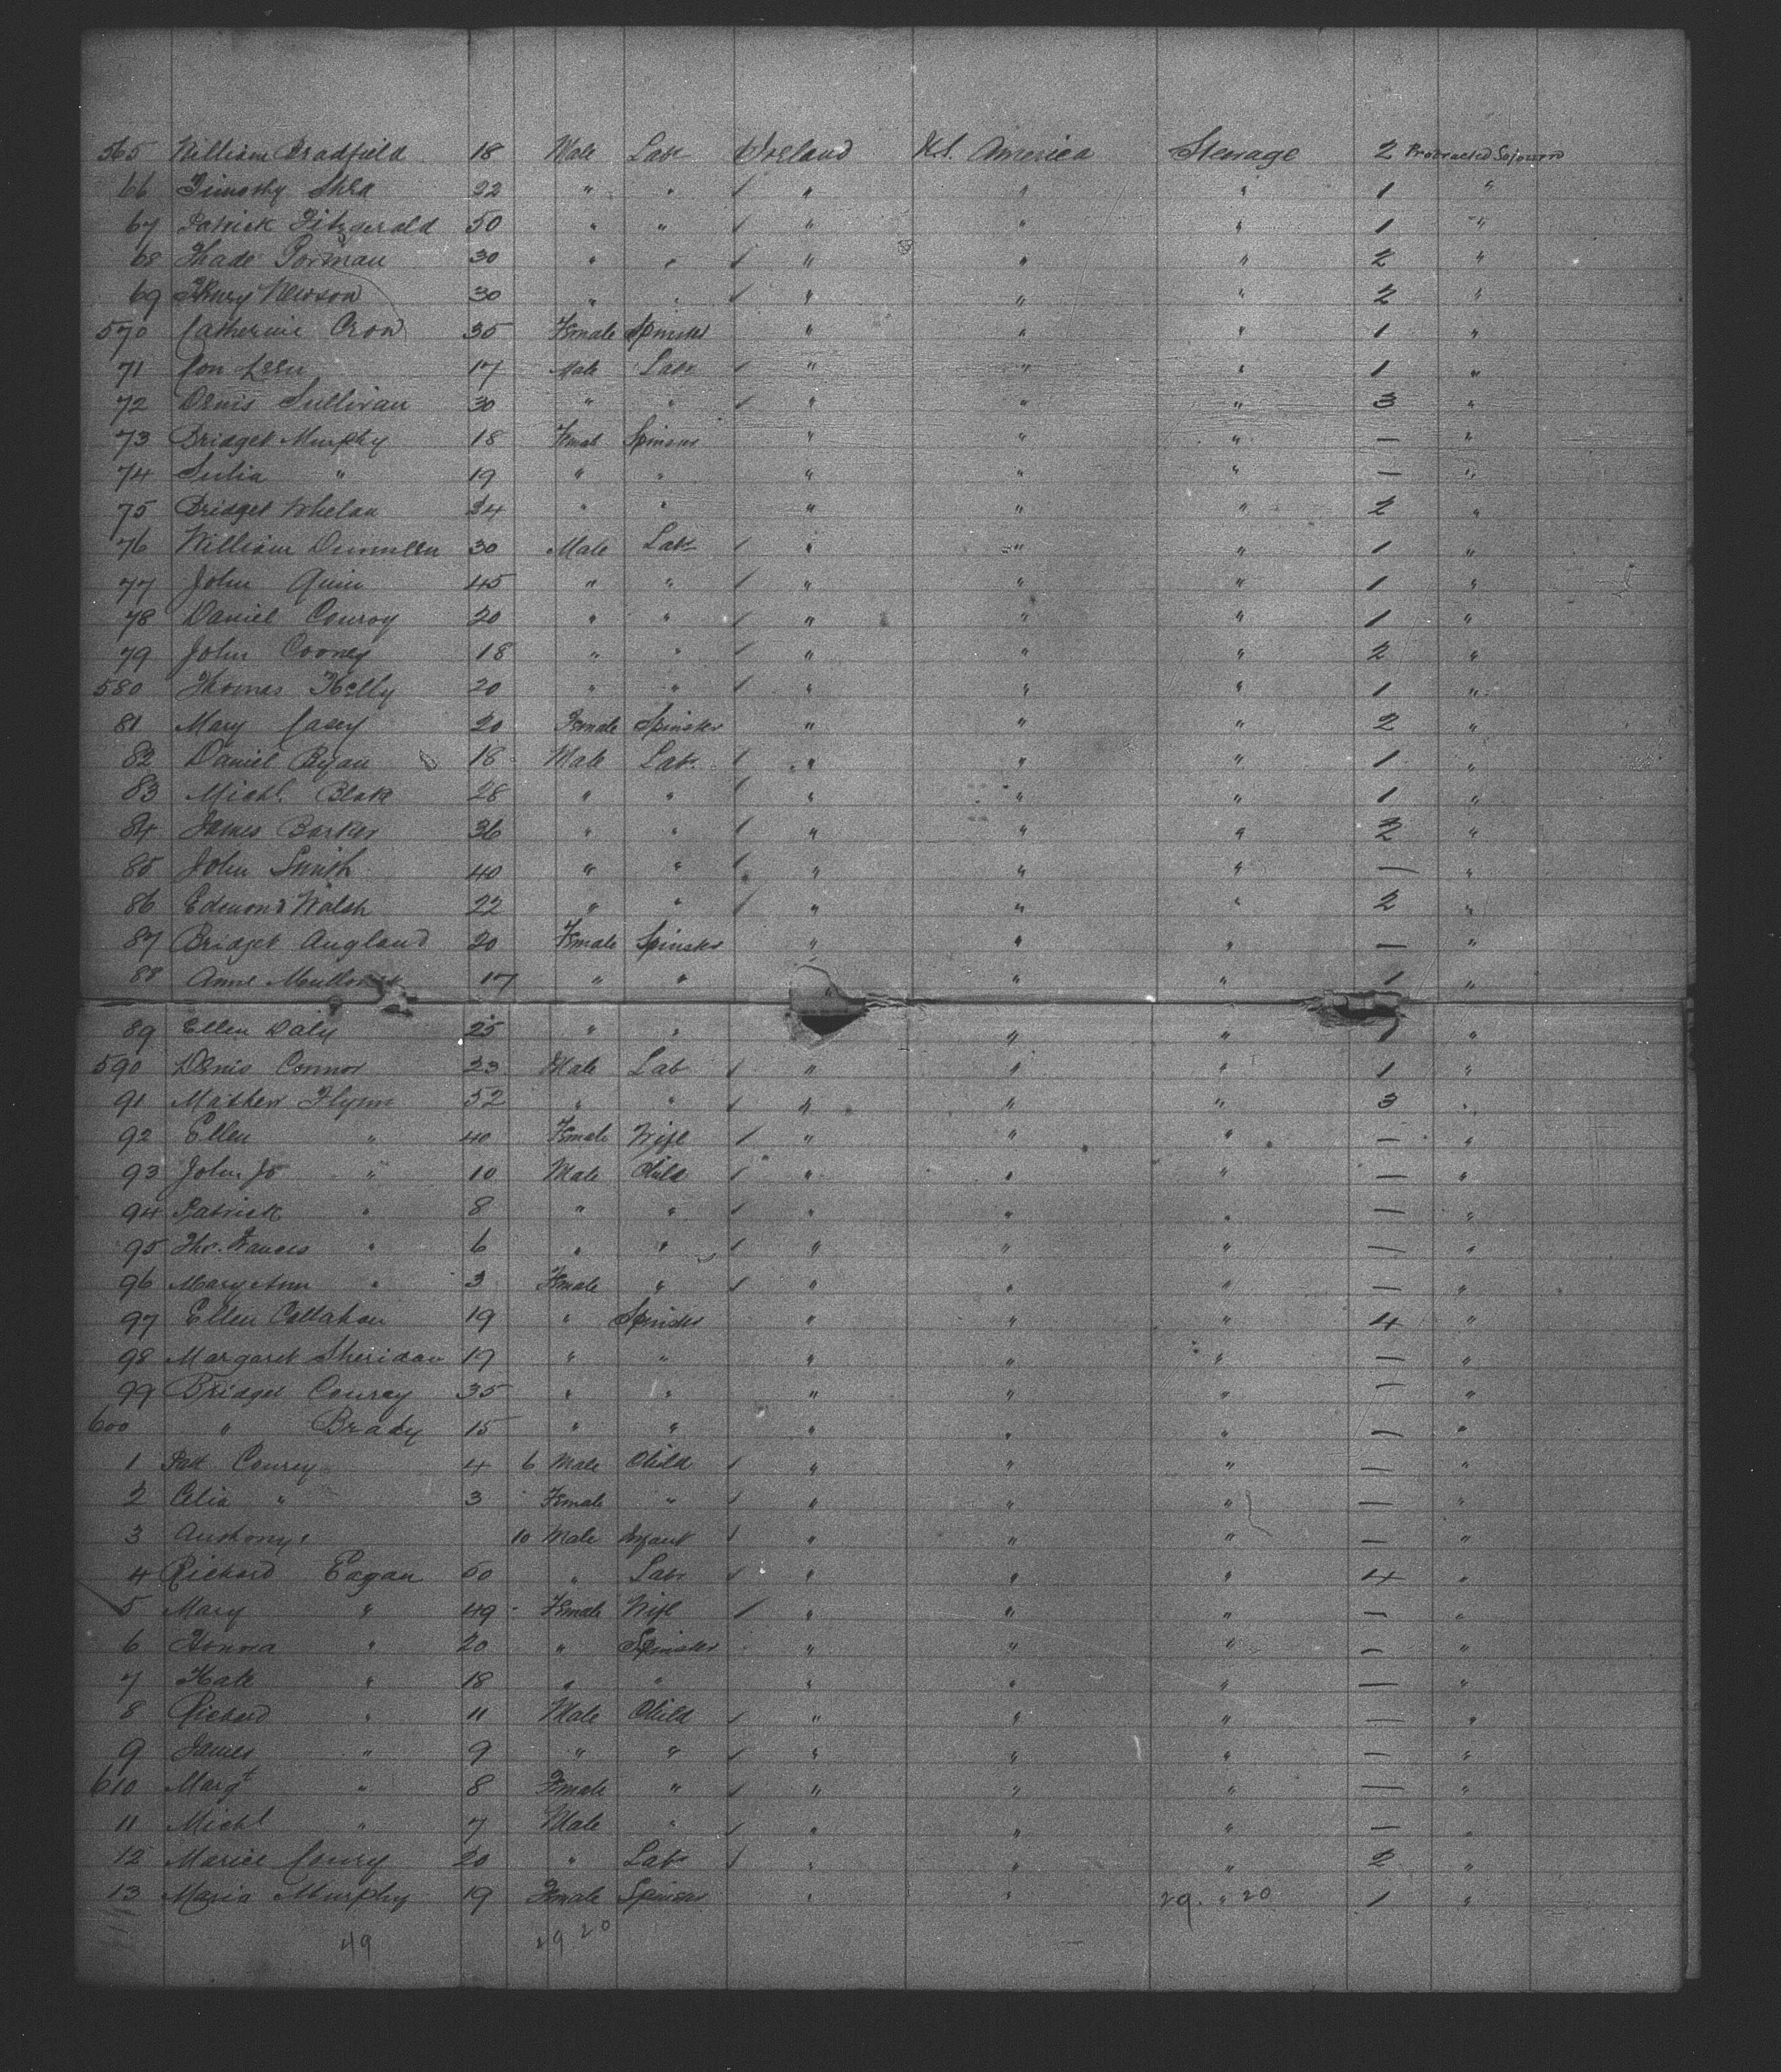 565 William Bradfield 18 Male Labr Ireland U.S. America Steerage 2 Protracted Sojourn
66 Timothy Shea 22 " " " " " 1 "
67 Patrick Fitzgerald 50 " " " " " 1 "
68 Thade Gorman 30 " " " " " 2 "
69 Henry Newson 30 " " " " " 2 "
570 Catherine Cron 35 Female Spinster " " " 1 "
71 Con 17 Male Labr " " " 1 "
72 Denis Sullivan 30 " " " " " 3 "
73 Bridget Murphy 18 Female Spinster " " " — "
74 Julia " 19 " " " " " — "
75 Bridget Whelan 34 " " " " " 2 "
76 William 30 Male Labr " " " 1 "
77 John Quin 45 " " " " " 1 "
78 Daniel Conroy 20 " " " " " 1 "
79 John Cooney 18 " " " " " 2 "
580 Thomas Kelly 20 " " " " " 1 "
81 Mary Casey 20 Female Spinster " " " 2 "
82 Daniel Ryan 18 Male Labr " " " 1 "
83 Michl. Blake 28 " " " " " 1 "
84 James Barker 36 " " " " " 2 "
85 John Smith 40 " " " " " — "
86 Edmond Walsh 22 " " " " " 2 "
87 Bridget Angland 20 Female Spinster " " " — "
88 Anne 17 " " " " " 1 "
89 Ellen Daly 25 " " " " 1 "
590 Denis Connor 23 Male Lab " " " 1 "
91 Mathew Flynn 52 " " " " " 3 "
92 Ellen " 40 Female Wife " " " — "
93 John Jo " 10 Male Child " " " — "
94 Patrick " 8 " " " " " — "
95 Ths. Francis " 6 " " " " " — "
96 Mary Ann " 3 Female " " " " — "
97 Ellen Callahan 19 " Spinster " " " 4 "
98 Margaret Sheridan 19 " " " " " — "
99 Bridget Conrey 35 " " " " " — "
600 " Brady 15 " " " " " — "
1 Patt Conrey 4 6 Male Child " " " — "
2 Celia " 3 Female " " " " — "
3 Anthony " 10 Male Infant " " " — "
4 Richard Eagan 50 " Labr " " " 4 "
5 Mary " 49 Female Wife " " " — "
6 Honora " 20 " Spinster " " " — "
7 Kate " 18 " " " " " — "
8 Richard " 11 Male Child " " " — "
9 James " 9 " " " " " — "
610 Margt " 8 Female " " " " — "
11 Michl " 7 Male " " " " — "
12 Conry 20 " Labr " " " 2 "
13 Maria Murphy 19 Female Spinster " " 29 " 20 1 "
49 29 20